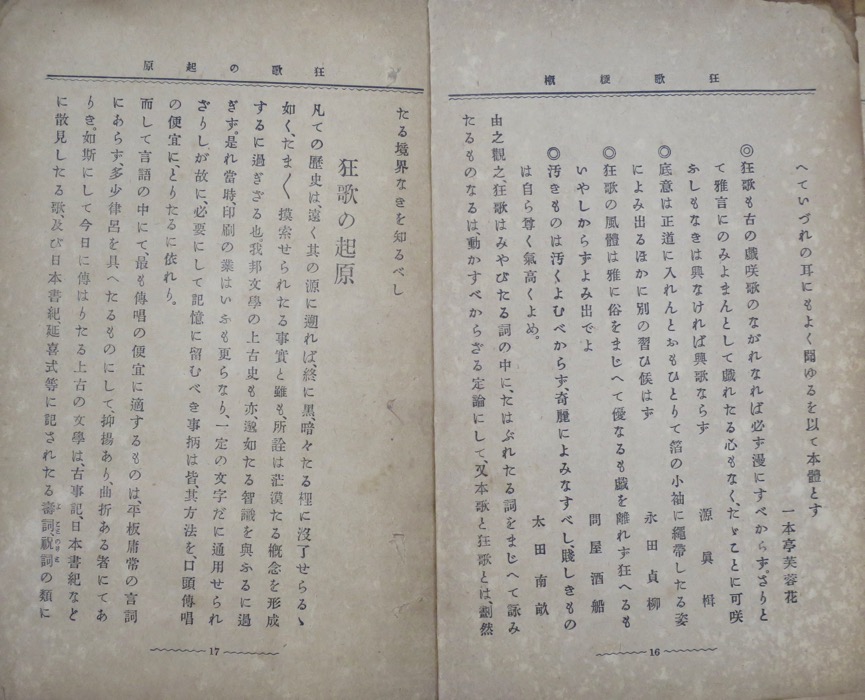 狂歌概梗
へていづれの耳にもよく聞ゆるを以て本體とす
一本亭芙蓉花
◎狂歌も古の戯咲歌のながれなれば必ず漫にすべからず。さりと
て雅言にのみよまんとして戯れたる心もなく、だゞことに可咲
ふしもなきは興なければ興歌ならす
源眞楫
◎底意は正道に入れんとおもひとりて箔の小袖に繩帶したる姿
によみ出るほかに別の習ひ候はす
永田貞柳
◎狂歌の風體は雅に俗をまじへて優なるも戯を離れす狂へるも
いやしからすよみ出でよ
問屋酒船
◎汚きものは汚くよむべからす、奇麗によみなすべし、賤しきもの
は自ら尊く氣高くよめ。
太田南畝
由之觀之、狂歌はみやびたる詞の中に、たはぶれたる詞をまじへて詠み
たるものなるは、動かすべからざる定論にして、又本歌と狂歌とは、劃然
16
狂歌の起原
たる境界なきを知るべし
狂歌の起原
凡ての歴史は、遠く其の源に遡れば、終に黑暗々たる裡に沒了せらるゝ
如く、たま〱摸索せられたる事實と雖も、所詮は茫漠たる概念を形成
するに過ぎざる也我邦文學の上古史も亦、邈如たる智識を與ふるに過
ぎす。是れ當時、印刷の業はいふも更らなり、一定の文字だに通用せられ
ざりしが故に、必要にして記憶に留むべき事柄は皆、其方法を、口頭傳唱
の便宜に、とりたるに依れり。
而して言語の中にて、最も傳唱の便宜に適するものは、平板庸常の言詞
にあらす、多少律呂を具へたるものにして、抑揚あり、曲折ある者にてあ
りき。如斯にして今日に傳はりたる上古の文學は、古事記、日本書紀など
に散見したる歌、及び日本書紀、延喜式等に記されたる壽詞、祝詞の類に
17